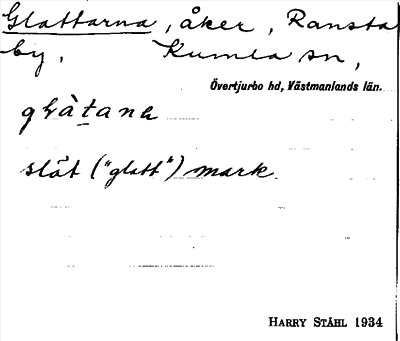 Glattarna, åker, Ransta
by, Kumla sn,
Övertjurbo hd, Västmanlands län.
glàtana
slät ("glatt") mark
HARRY STÅHL 1934